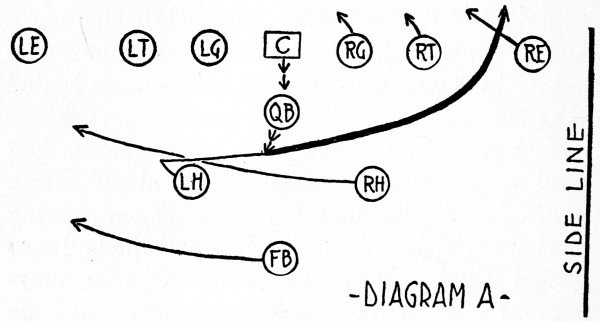 LE LT LG C RG RT RE
QB
LH RH
FB
SIDE LINE
-DIAGRAM A-